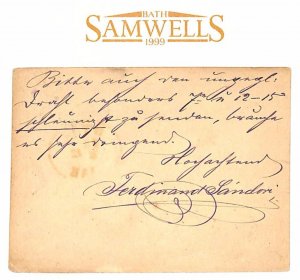 BATH
SAMWELLS
1999
Bitte auch den ungegl.
Draht besonders zu 12-15
schleunigst zu senden, brauche
es sehr dringend.
Hochachtend
Ferdinand Sándori